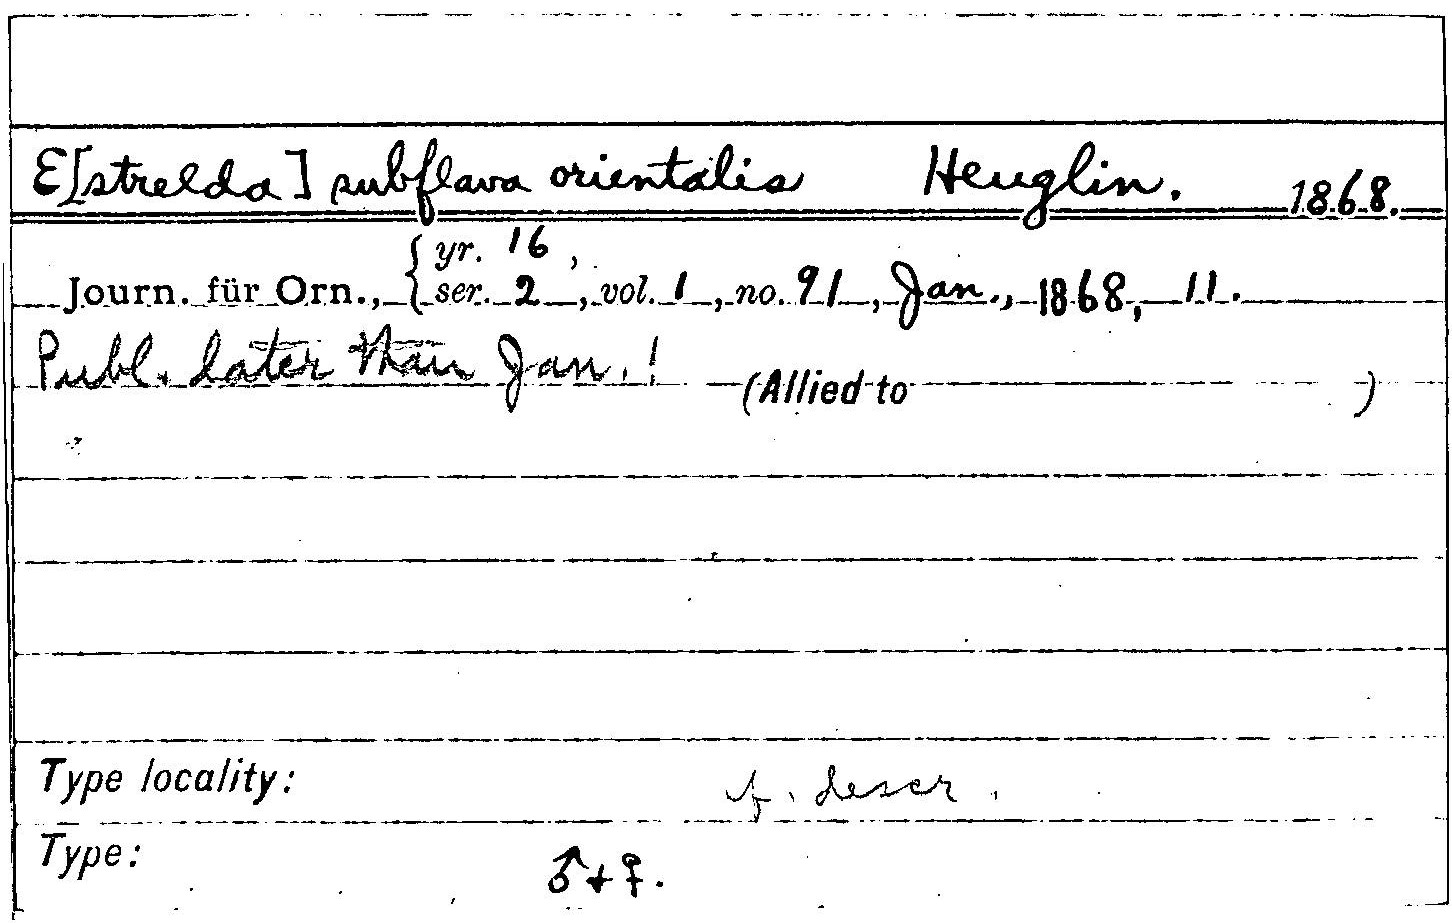 E[strelda] subflava orientalis Heuglin. 1868.
Journ. für Orn., { yr. 16, ser. 2, vol. 1, no. 91, Jan., 1868, 11.
Publ. later than Jan.! (Allied to )
Type locality: descr.
Type: ♂ + ♀.